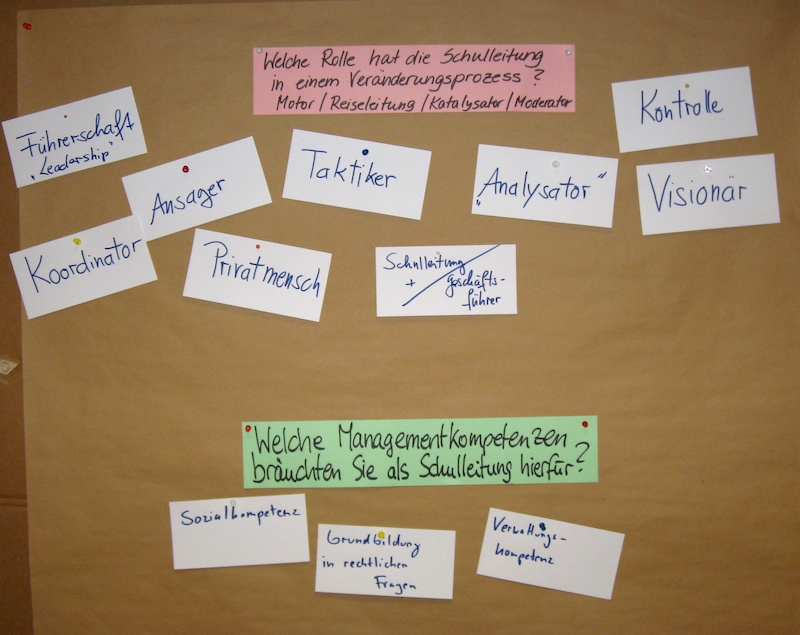 Welche Rolle hat die Schulleitung
in einem Veränderungsprozess?
Motor / Reiseleitung / Katalysator / Moderator
Führerschaft
"Leadership"
Ansager
Taktiker
"Analysator"
Kontrolle
Visionär
Koordinator
Privatmensch
Schulleitung
+
geschäfts-
führer
Welche Managementkompetenzen
bräuchten Sie als Schulleitung hierfür?
Sozialkompetenz
Grundbildung
in rechtlichen
Fragen
Verwaltungs-
kompetenz